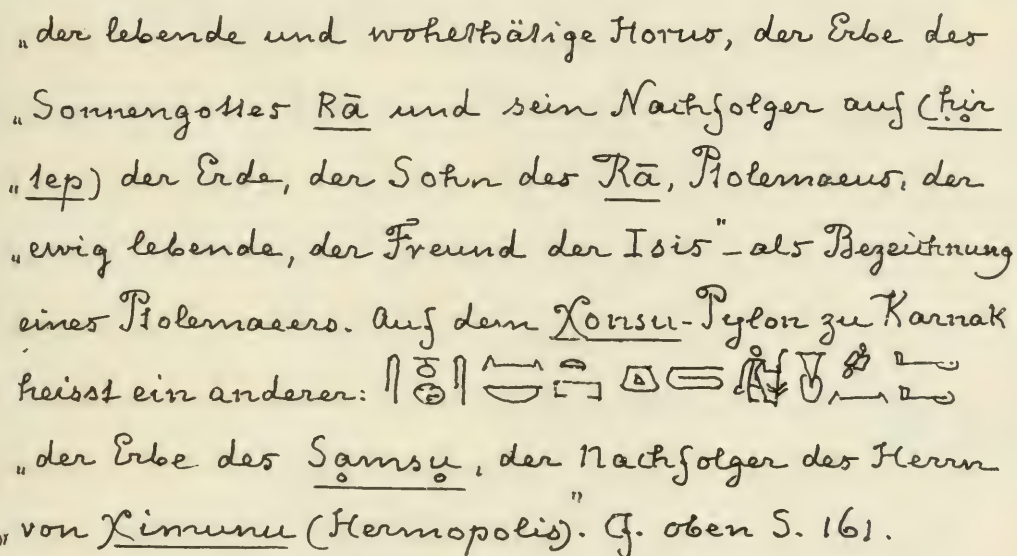 „der lebende und wohlthätige Horus, der Erbe des
„Sonnengottes Rā und sein Nachfolger auf (ḥir
„tep) der Erde, der Sohn des Rā, Ptolemaeus, der
„ewig lebende, der Freund der Isis" – als Bezeichnung
eines Ptolemaeers. Auf dem Χonsu-Pylon zu Karnak
heisst ein anderer:
„der Erbe des Sạmsụ, der Nachfolger des Herrn
„von Χimunu (Hermopolis)". Cf. oben S. 161.